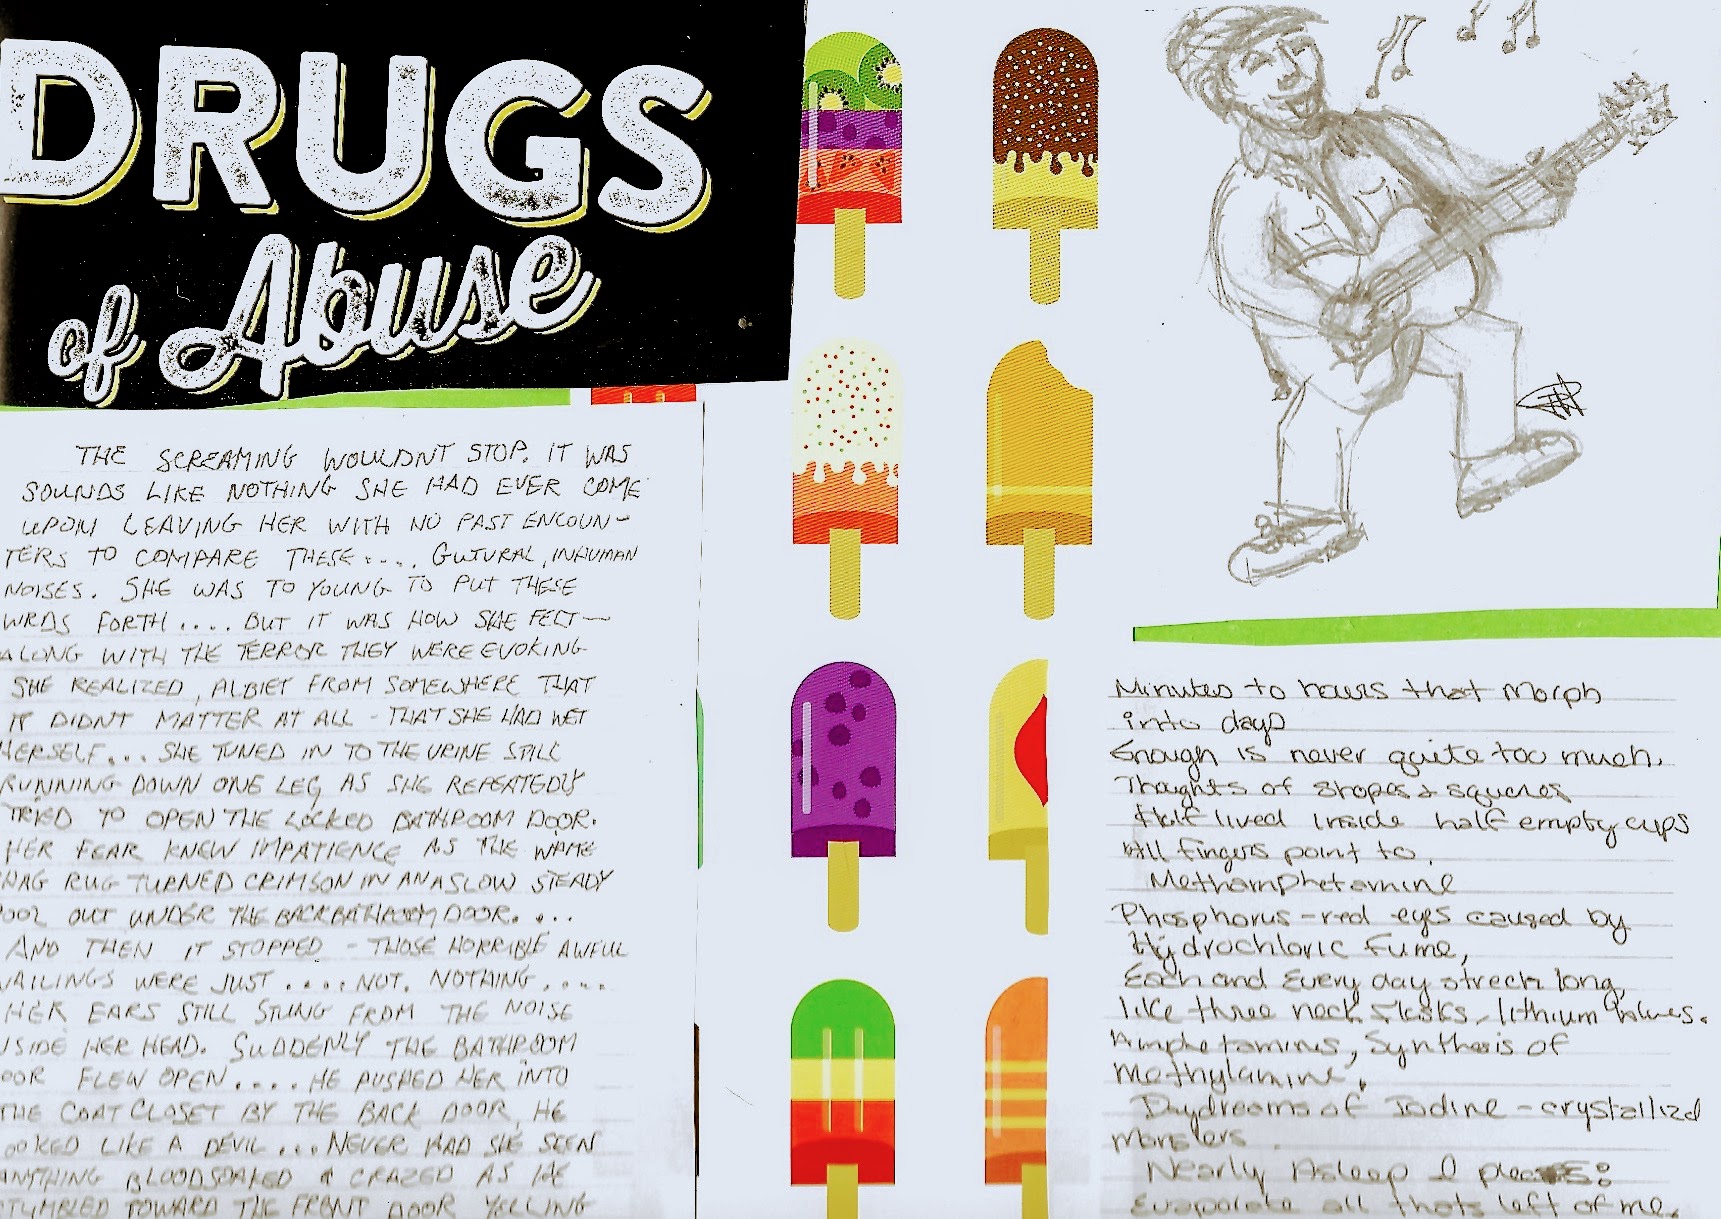 DRUGS
of Abuse
THE SCREAMING WOULDNT STOP. IT WAS
SOUNDS LIKE NOTHING SHE HAD EVER COME
UPON LEAVING HER WITH NO PAST ENCOUN-
TERS TO COMPARE THESE.... GUTURAL, INHUMAN
NOISES. SHE WAS TO YOUNG TO PUT THESE
WRDS FORTH.... BUT IT WAS HOW SHE FELT—
ALONG WITH THE TERROR THEY WERE EVOKING
SHE REALIZED, ALBIET FROM SOMEWHERE THAT
IT DIDNT MATTER AT ALL - THAT SHE HAD WET
HERSELF... SHE TUNED IN TO THE URINE STILL
RUNNING DOWN ONE LEG AS SHE REPEATEDLY
TRIED TO OPEN THE LOCKED BATHROOM DOOR.
HER FEAR KNEW IMPATIENCE AS THE WHITE
HAG RUG TURNED CRIMSON IN AN A SLOW STEADY
POOL OUT UNDER THE BACK BATHROOM DOOR....
AND THEN IT STOPPED - THOSE HORRIBLE AWFUL
WAILINGS WERE JUST .... NOT. NOTHING....
HER EARS STILL STUNG FROM THE NOISE
SIDE HER HEAD. SUDDENLY THE BATHROOM
OOR FLEW OPEN.... HE PUSHED HER INTO
THE COAT CLOSET BY THE BACK DOOR, HE
OOKED LIKE A DEVIL... NEVER HAD SHE SEEN
ANYTHING BLOODSOAKED & CRAZED AS HE
STUMBLED TOWARD THE FRONT DOOR YELLING
Minutes to hours that Morph
into days
Enough is never quite too much.
Thoughts of shapes & squares
Half lived inside half empty cups
All fingers point to,
Methamphetamine
Phosphorus-red eyes caused by
Hydrochloric Fume,
Each and Every day strech long,
like three neck flasks, lithium
Amphetamines, Synthesis of
Methylamine,
Daydreams of Iodine-crystallized
Monsters
Nearly Asleep I
Evaporate all thats left of me.